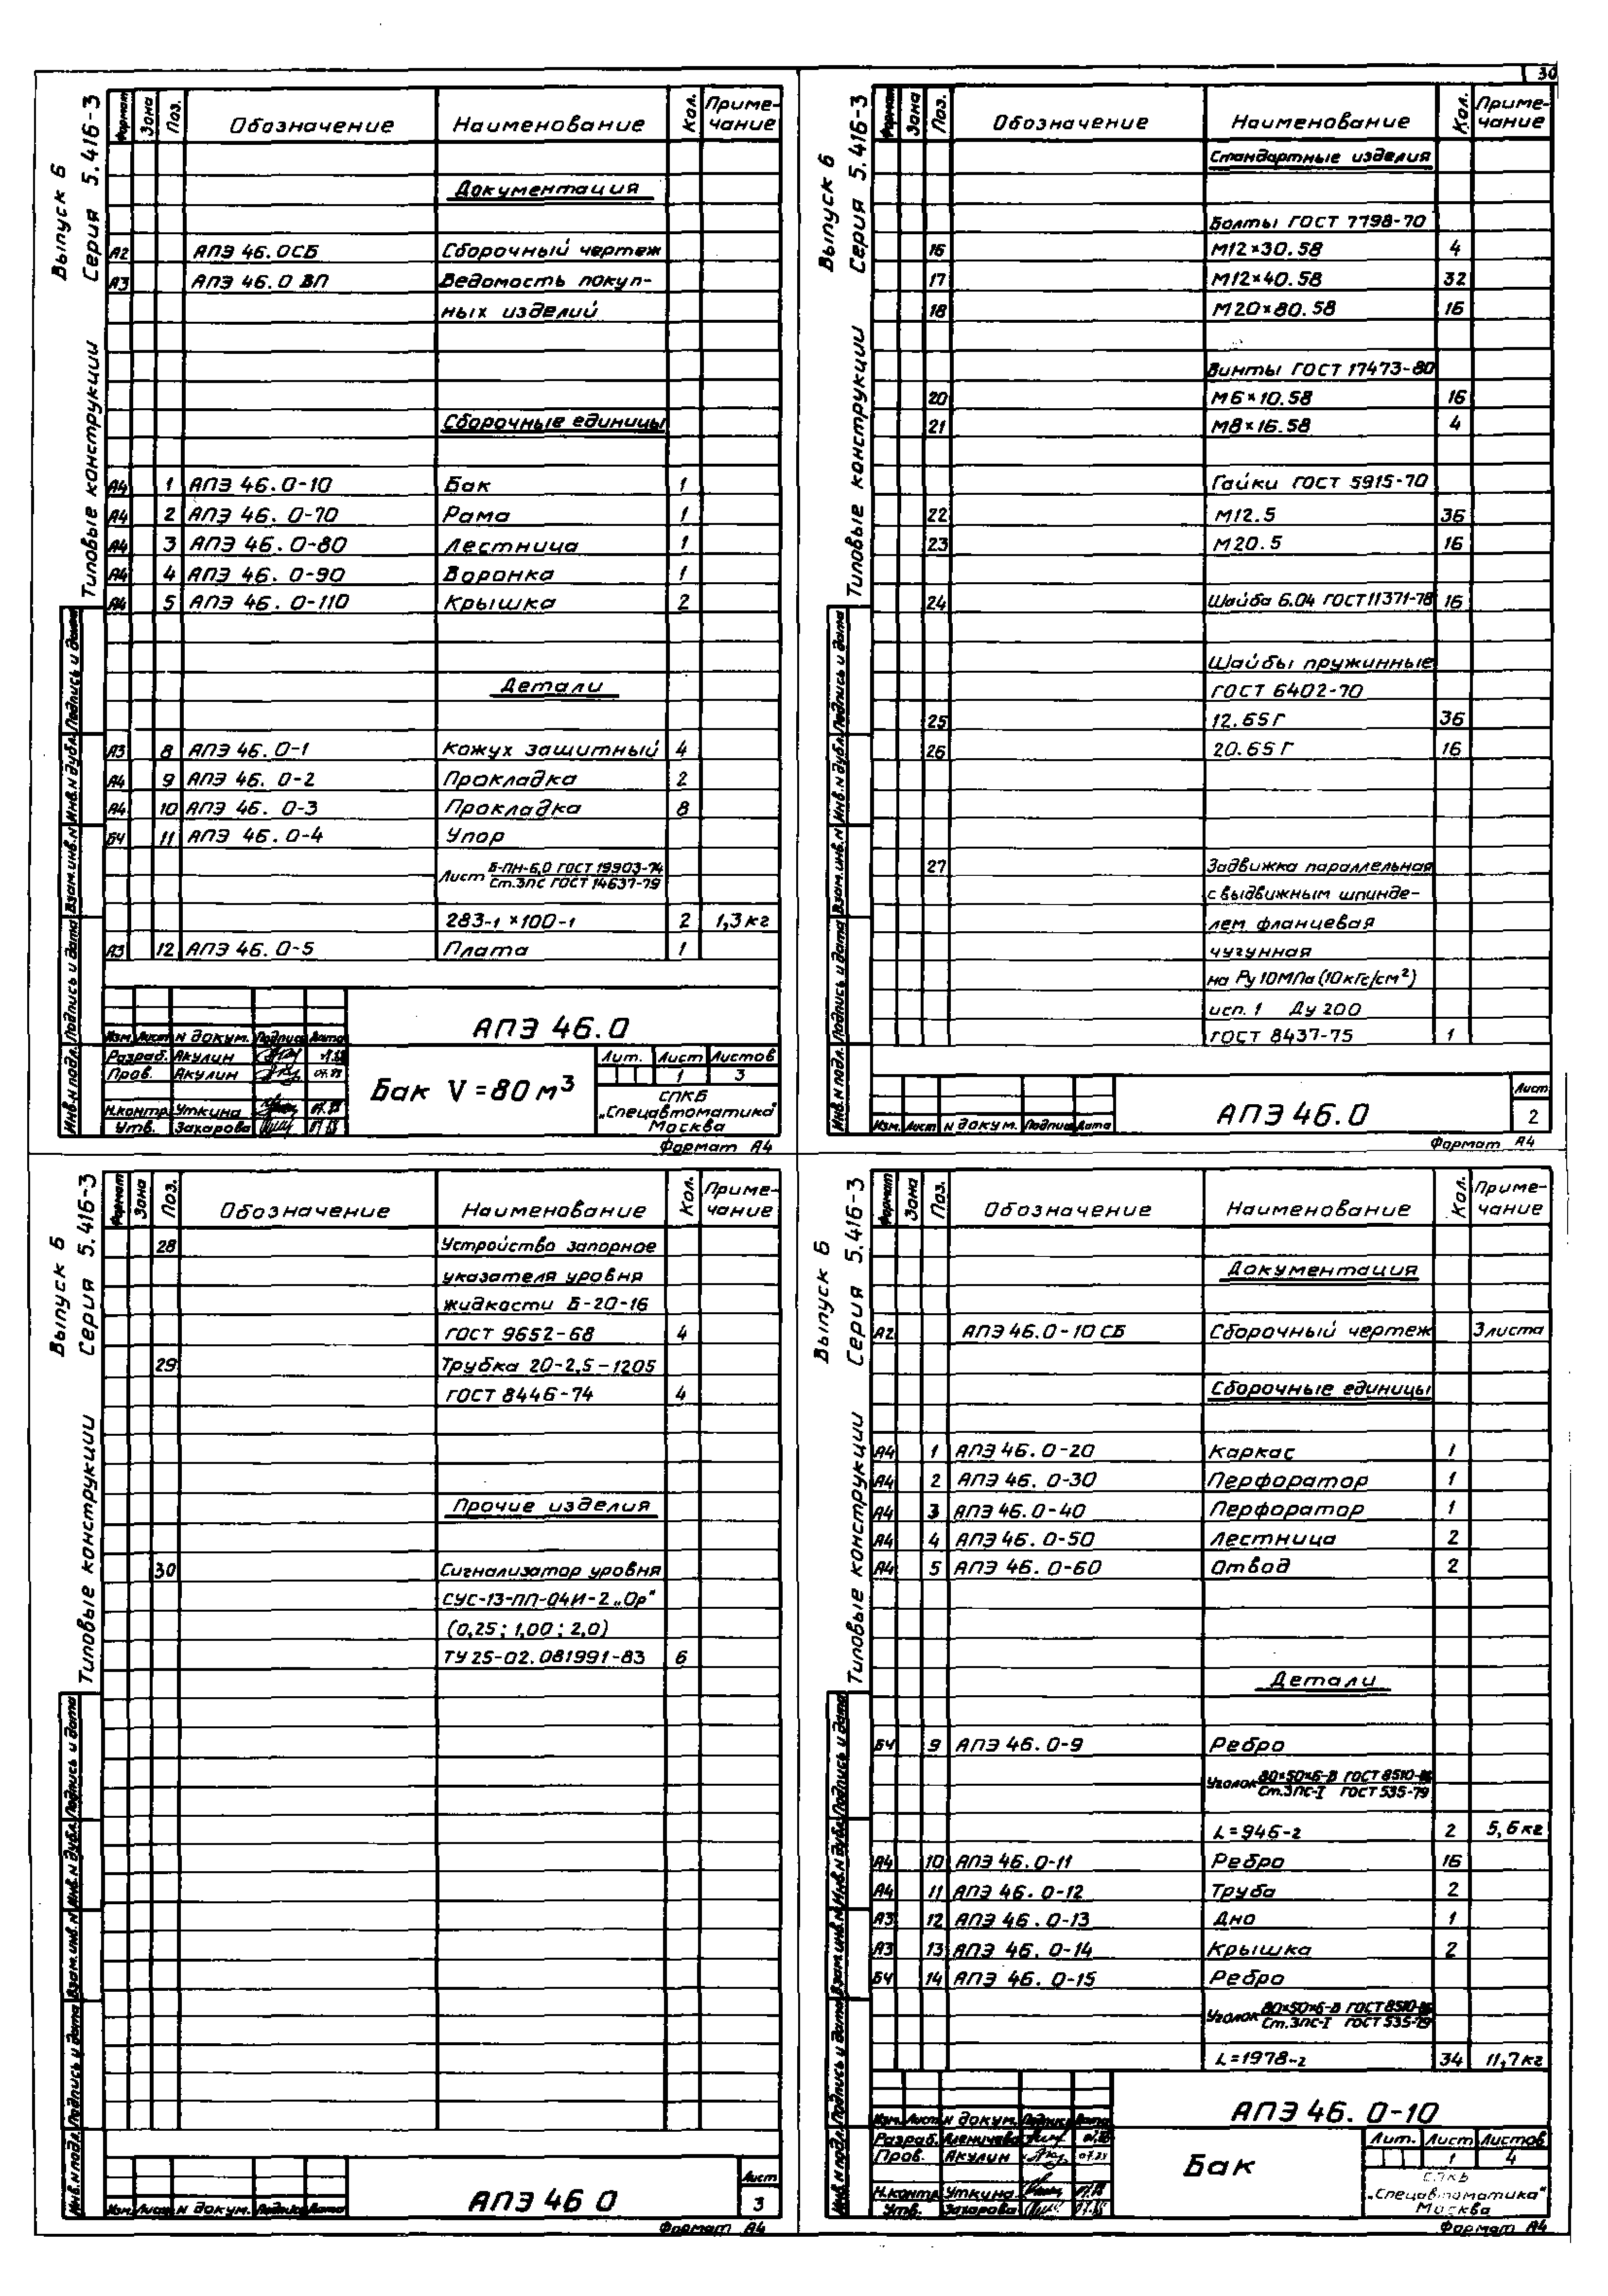 30
Выпуск 6
Серия 5.416-3
Типовые конструкции
Формат Зона Поз. Обозначение Наименование Кол. Приме-чание
Документация
А2 АПЭ 46.0СБ Сборочный чертеж
А3 АПЭ 46.0 ВП Ведомость покуп-
ных изделий
Сборочные единицы
А4 1 АПЭ 46.0-10 Бак 1
А4 2 АПЭ 46.0-70 Рама 1
А4 3 АПЭ 46.0-80 Лестница 1
А4 4 АПЭ 46.0-90 Воронка 1
А4 5 АПЭ 46.0-110 Крышка 2
Детали
А3 8 АПЭ 46.0-1 Кожух защитный 4
А4 9 АПЭ 46.0-2 Прокладка 2
А4 10 АПЭ 46.0-3 Прокладка 8
БЧ 11 АПЭ 46.0-4 Упор
Лист Б-ПН-6,0 ГОСТ 19903-74
Ст.3пс ГОСТ 14637-79
283-1 × 100-1 2 1,3 кг
А3 12 АПЭ 46.0-5 Плата 1
Инв.N подл. Подпись и дата Взам.инв.N Инв.N дубл. Подпись и дата
Изм. Лист N докум. Подпись Дата
Разраб. Акулин
Пров. Акулин
Н.контр. Уткина
Утв. Захарова
АПЭ 46.0
Бак V=80 м³
Лит. Лист Листов
1 3
СПКБ
„Спецавтоматика"
Москва
Формат А4
Выпуск 6
Серия 5.416-3
Типовые конструкции
Формат Зона Поз. Обозначение Наименование Кол. Приме-чание
Стандартные изделия
Болты ГОСТ 7798-70
16 М12×30.58 4
17 М12×40.58 32
18 М20×80.58 16
Винты ГОСТ 17473-80
20 М6×10.58 16
21 М8×16.58 4
Гайки ГОСТ 5915-70
22 М12.5 36
23 М20.5 16
24 Шайба 6.04 ГОСТ 11371-78 16
Шайбы пружинные
ГОСТ 6402-70
25 12.65Г 36
26 20.65Г 16
27 Задвижка параллельная
с выдвижным шпинде-
лем фланцевая
чугунная
на Ру 10МПа (10кгс/см²)
исп. 1 Ду 200
ГОСТ 8437-75 1
Инв.N подл. Подпись и дата Взам.инв.N Инв.N дубл. Подпись и дата
Изм. Лист N докум. Подпись Дата
АПЭ 46.0
Лист
2
Формат А4
Выпуск 6
Серия 5.416-3
Типовые конструкции
Формат Зона Поз. Обозначение Наименование Кол. Приме-чание
28 Устройство запорное
указателя уровня
жидкости Б-20-16
ГОСТ 9652-68 4
29 Трубка 20-2,5-1205
ГОСТ 8446-74 4
Прочие изделия
30 Сигнализатор уровня
СУС-13-ПП-04И-2 „Ор"
(0,25; 1,00; 2,0)
ТУ 25-02.081991-83 6
Инв.N подл. Подпись и дата Взам.инв.N Инв.N дубл. Подпись и дата
Изм. Лист N докум. Подпись Дата
АПЭ 46 0
Лист
3
Формат А4
Выпуск 6
Серия 5.416-3
Типовые конструкции
Формат Зона Поз. Обозначение Наименование Кол. Приме-чание
Документация
А2 АПЭ 46.0-10 СБ Сборочный чертеж 3 листа
Сборочные единицы
А4 1 АПЭ 46.0-20 Каркас 1
А4 2 АПЭ 46.0-30 Перфоратор 1
А4 3 АПЭ 46.0-40 Перфоратор 1
А4 4 АПЭ 46.0-50 Лестница 2
А4 5 АПЭ 46.0-60 Отвод 2
Детали
БЧ 9 АПЭ 46.0-9 Ребро
Уголок 80×50×6-В ГОСТ 8510-
Ст.3пс-I ГОСТ 535-79
L=946-2 2 5,6 кг
А4 10 АПЭ 46.0-11 Ребро 16
А4 11 АПЭ 46.0-12 Труба 2
А3 12 АПЭ 46.0-13 Дно 1
А3 13 АПЭ 46.0-14 Крышка 2
БЧ 14 АПЭ 46.0-15 Ребро
Уголок 80×50×6-В ГОСТ 8510-
Ст.3пс-I ГОСТ 535-79
L=1978-2 34 11,7 кг
Инв.N подл. Подпись и дата Взам.инв.N Инв.N дубл. Подпись и дата
Изм. Лист N докум. Подпись Дата
Разраб.
Пров. Акулин
Н.контр. Уткина
Утв. Захарова
АПЭ 46.0-10
Бак
Лит. Лист Листов
1 4
СПКБ
„Спецавтоматика"
Москва
Формат А4